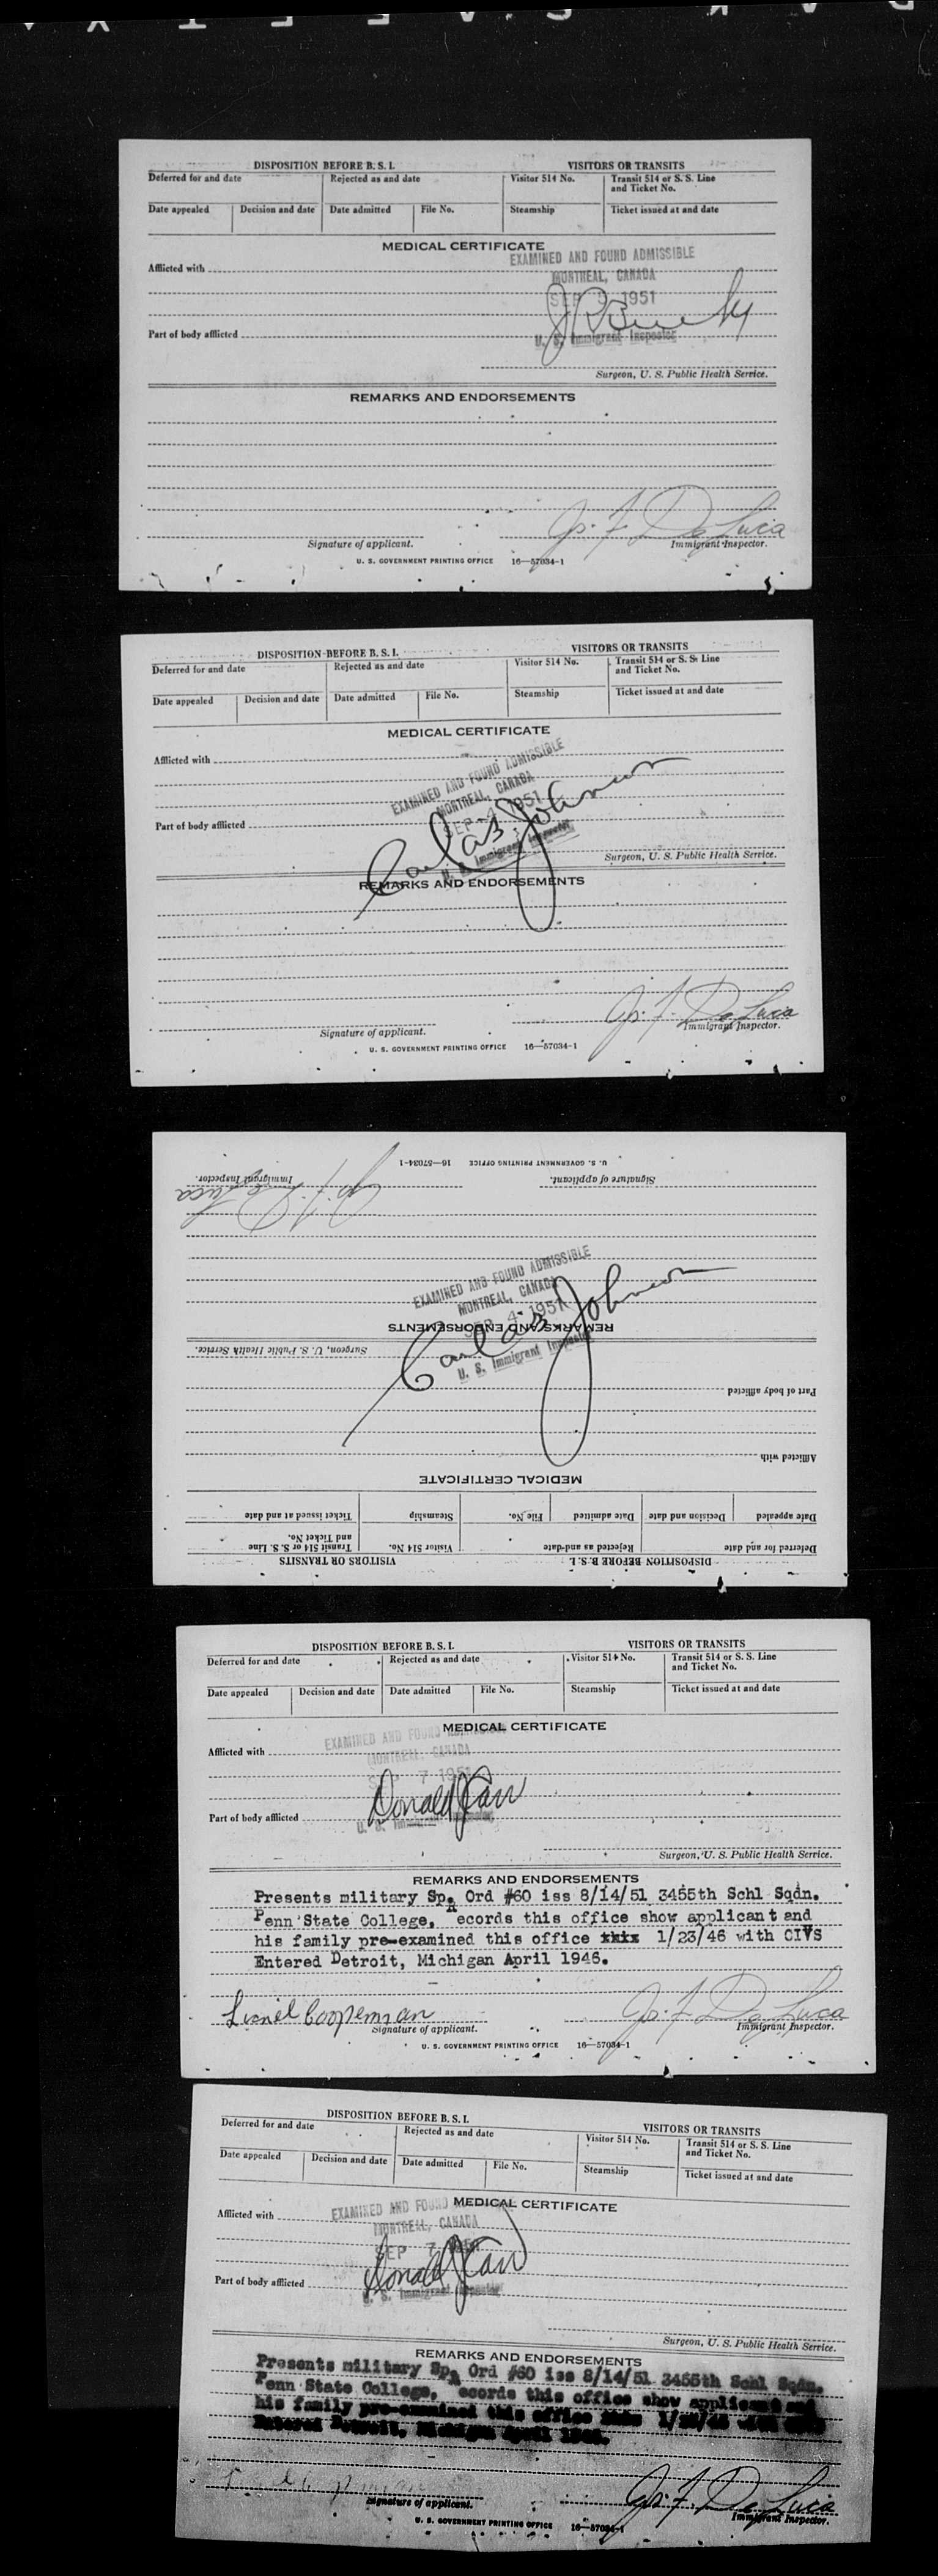 DISPOSITION BEFORE B. S. I. VISITORS OR TRANSITS
Deferred for and date Rejected as and date Visitor 514 No. Transit 514 or S. S. Line and Ticket No.
Date appealed Decision and date Date admitted File No. Steamship Ticket issued at and date
MEDICAL CERTIFICATE
EXAMINED AND FOUND ADMISSIBLE
Afflicted with
MONTREAL, CANADA
SEP 5 1951
Part of body afflicted
U. S. Immigrant Inspector
Surgeon, U. S. Public Health Service.
REMARKS AND ENDORSEMENTS
Jos. F. De Luca
Signature of applicant. Immigrant Inspector.
U. S. GOVERNMENT PRINTING OFFICE 16—57034-1
DISPOSITION BEFORE B. S. I. VISITORS OR TRANSITS
Deferred for and date Rejected as and date Visitor 514 No. Transit 514 or S. S. Line and Ticket No.
Date appealed Decision and date Date admitted File No. Steamship Ticket issued at and date
MEDICAL CERTIFICATE
Afflicted with
EXAMINED AND FOUND ADMISSIBLE
MONTREAL, CANADA
SEP - 4 1951
Part of body afflicted
Carl as Johnson
U. S. Immigrant Inspector
Surgeon, U. S. Public Health Service.
REMARKS AND ENDORSEMENTS
Jos. F. De Luca
Signature of applicant. Immigrant Inspector.
U. S. GOVERNMENT PRINTING OFFICE 16—57034-1
DISPOSITION BEFORE B. S. I. VISITORS OR TRANSITS
Deferred for and date Rejected as and date Visitor 514 No. Transit 514 or S. S. Line and Ticket No.
Date appealed Decision and date Date admitted File No. Steamship Ticket issued at and date
MEDICAL CERTIFICATE
Afflicted with
Part of body afflicted
Surgeon, U. S. Public Health Service.
REMARKS AND ENDORSEMENTS
EXAMINED AND FOUND ADMISSIBLE
MONTREAL, CANADA
SEP 4 - 1951
Carl as Johnson
U. S. Immigrant Inspector
Jos. F. De Luca
Signature of applicant. Immigrant Inspector.
U. S. GOVERNMENT PRINTING OFFICE 16—57034-1
DISPOSITION BEFORE B. S. I. VISITORS OR TRANSITS
Deferred for and date Rejected as and date Visitor 514 No. Transit 514 or S. S. Line and Ticket No.
Date appealed Decision and date Date admitted File No. Steamship Ticket issued at and date
MEDICAL CERTIFICATE
EXAMINED AND FOUND ADMISSIBLE
Afflicted with
MONTREAL, CANADA
SEP 7 1951
Donald J Carr
Part of body afflicted
U. S. Immigrant Inspector
Surgeon, U. S. Public Health Service.
REMARKS AND ENDORSEMENTS
Presents military Sp. Ord #60 iss 8/14/51 3455th Schl Sqdn.
Penn State College, Records this office show applicant and
his family pre-examined this office xxxx 1/23/46 with CIVS
Entered Detroit, Michigan April 1946.
Lionel Cooperman Jos. F. De Luca
Signature of applicant. Immigrant Inspector.
U. S. GOVERNMENT PRINTING OFFICE 16—57034-1
DISPOSITION BEFORE B. S. I. VISITORS OR TRANSITS
Deferred for and date Rejected as and date Visitor 514 No. Transit 514 or S. S. Line and Ticket No.
Date appealed Decision and date Date admitted File No. Steamship Ticket issued at and date
MEDICAL CERTIFICATE
EXAMINED AND FOUND
Afflicted with
MONTREAL, CANADA
SEP 7 1951
Donald J Carr
Part of body afflicted
U. S. Immigrant Inspector
Surgeon, U. S. Public Health Service.
REMARKS AND ENDORSEMENTS
Presents military Sp. Ord #60 iss 8/14/51 3455th Schl Sqdn.
Penn State College, Records this office show applicant and
his family pre-examined this office xxxx 1/23/46 with CIVS
Entered Detroit, Michigan April 1946.
Jos. F. De Luca
Signature of applicant. Immigrant Inspector.
U. S. GOVERNMENT PRINTING OFFICE 16—57034-1